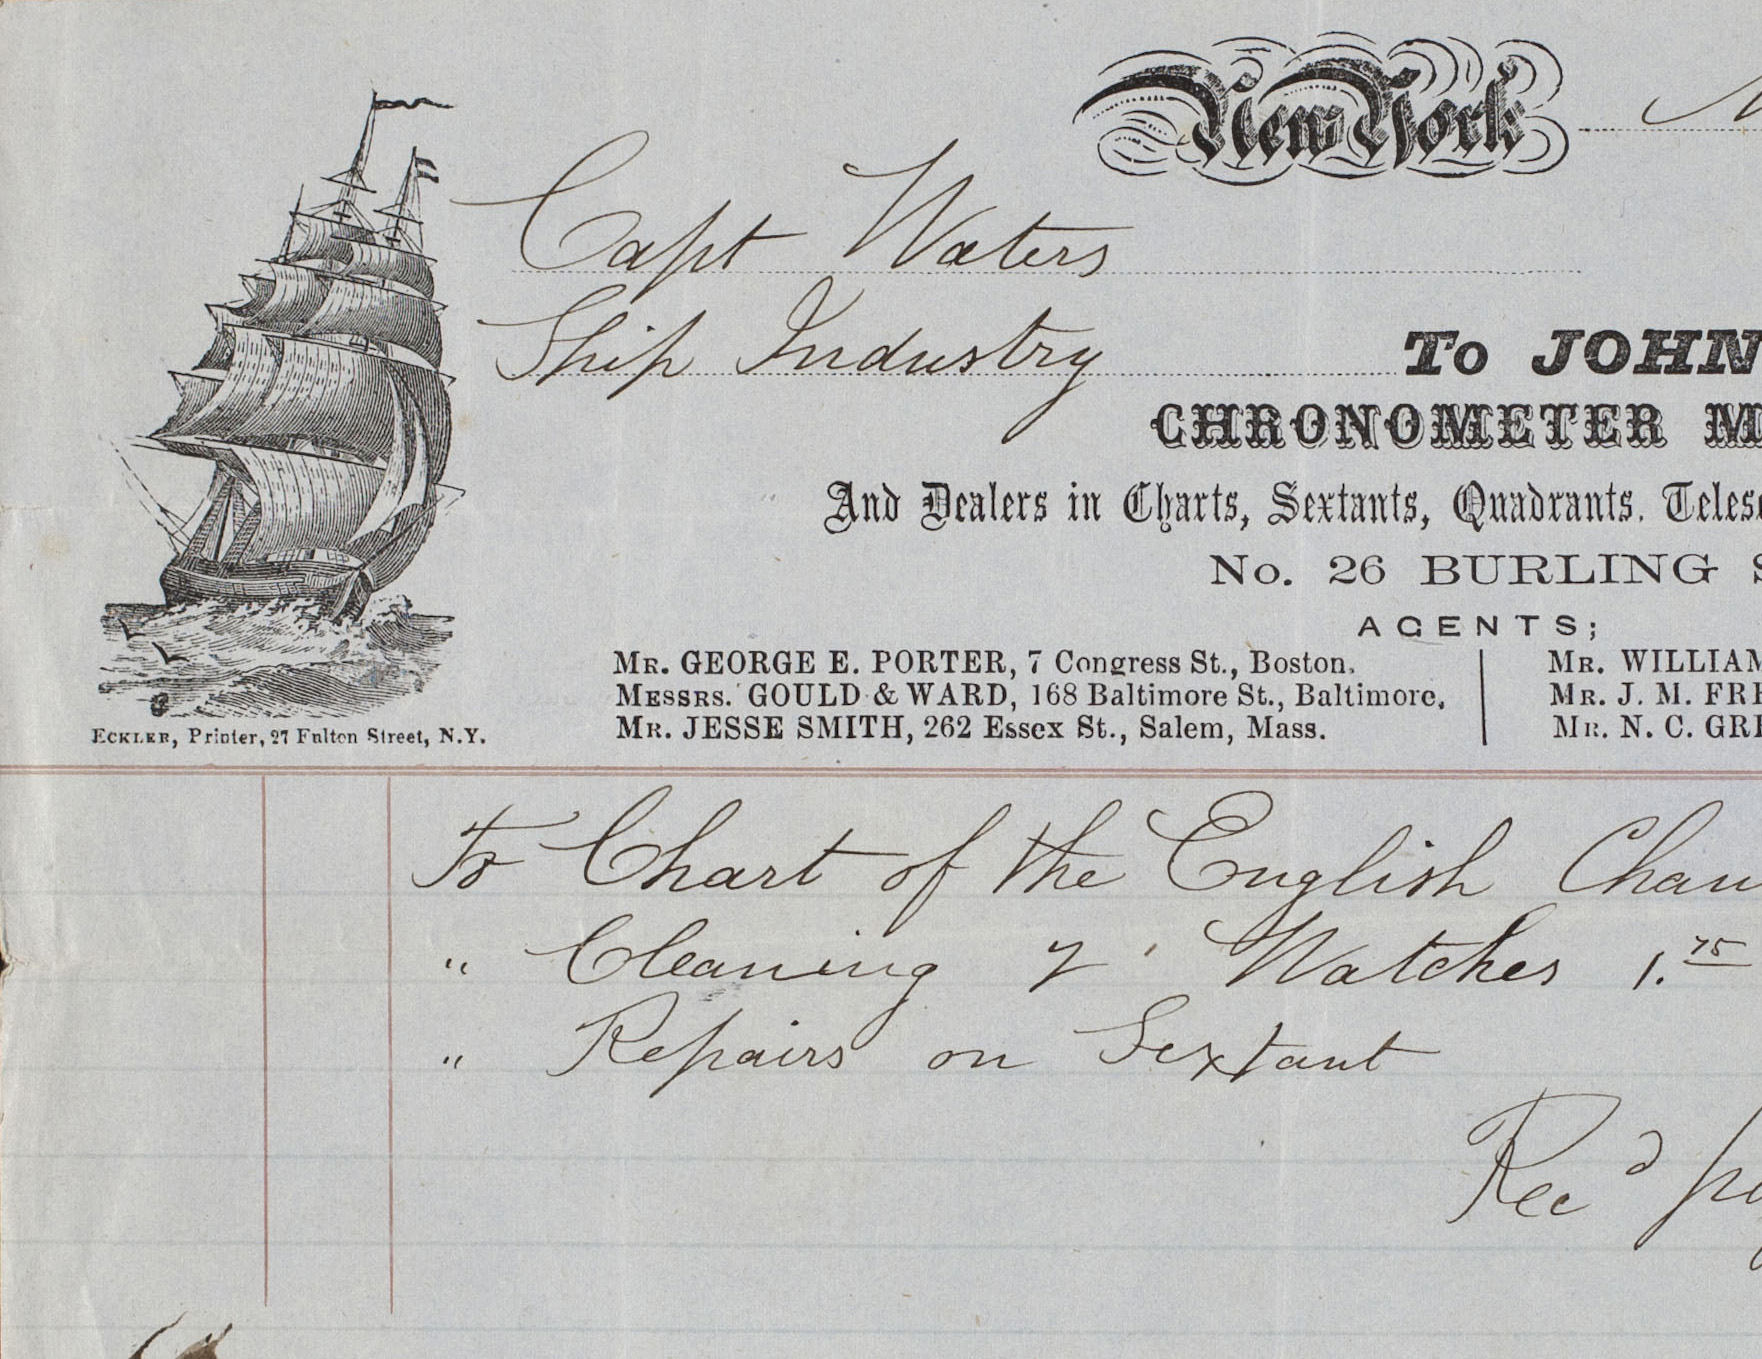 New York
Capt Waters
Ship Industry
To JOHN
CHRONOMETER
And Dealers in Charts, Sextants, Quadrants. Teles
No. 26 BURLING
AGENTS;
MR. GEORGE E. PORTER, 7 Congress St., Boston.
MESSRS. GOULD & WARD, 168 Baltimore St., Baltimore.
MR. JESSE SMITH, 262 Essex St., Salem, Mass.
MR. WILLIAM
MR. J. M. FRE
MR. N. C. GRE
ECKLER, Printer, 27 Fulton Street, N.Y.
To Chart of the English Chan
" Cleaning 2 Watches 1.75
" Repairs on Sextant
Recd